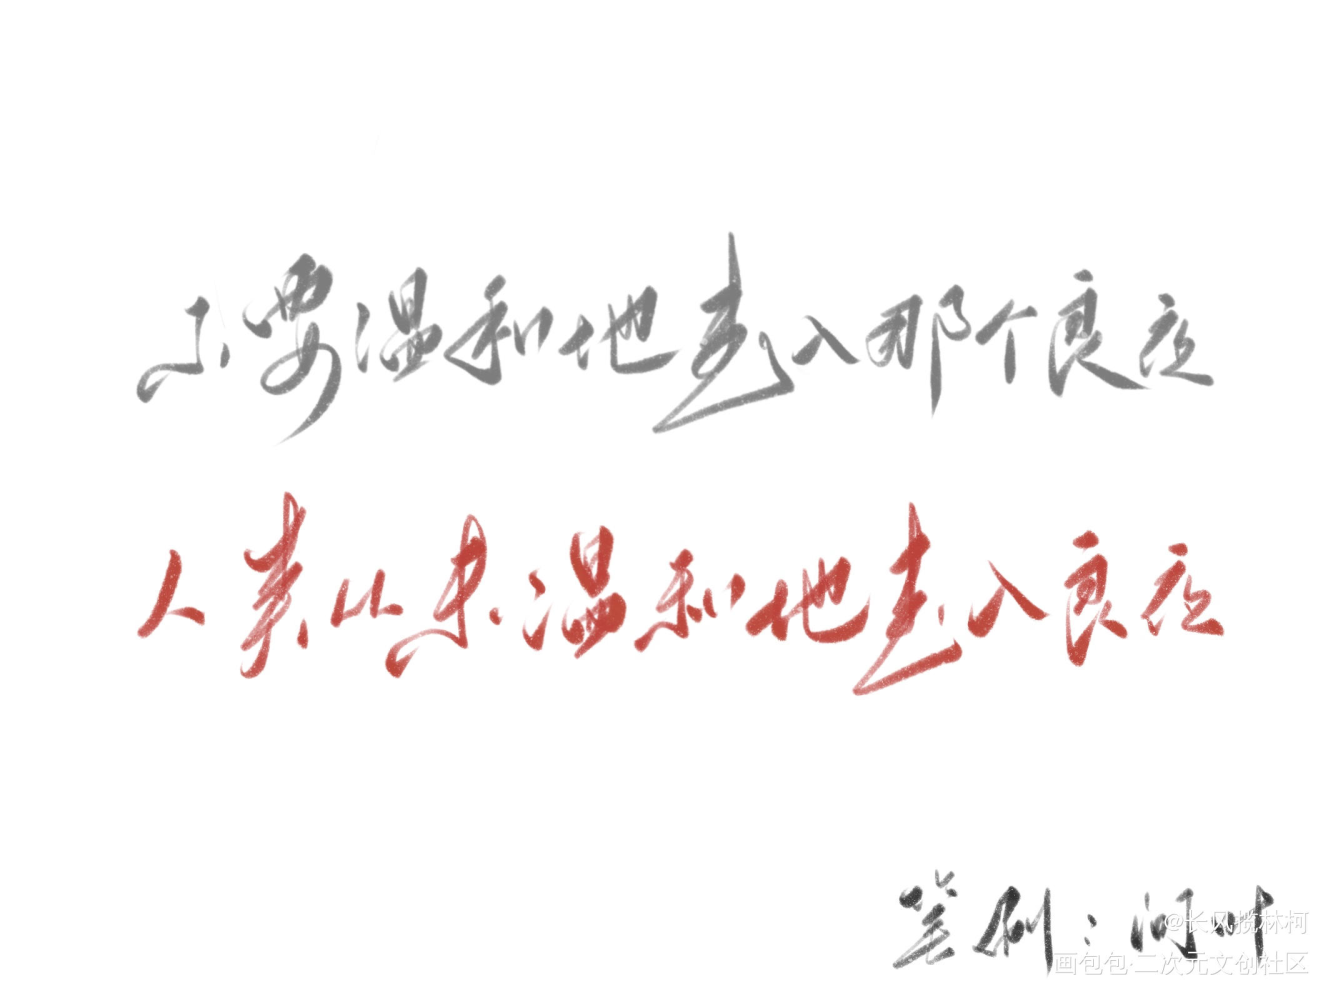 不要温和地走入那个良夜
人类从未温和地走入良夜
笔刷：问叶
@长风揽林柯
画包包·二次元文创社区